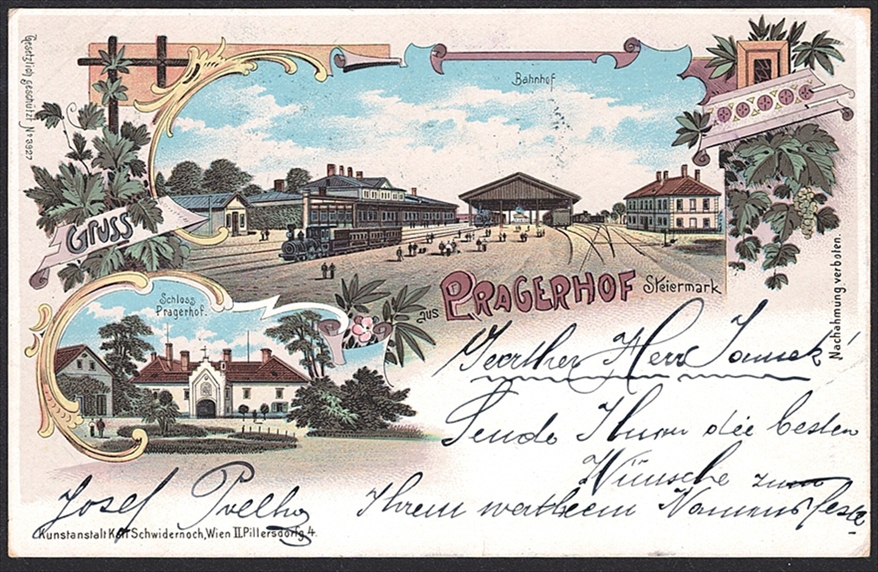 Gesetzlich geschützt No 3927
Bahnhof
Gruss
aus PRAGERHOF Steiermark
Schloss
Pragerhof.
Nachahmung verboten.
Geerther Herr
Sende Ihnen die besten
Wünsche zum
Ihrem werthen Namensfeste
Josef
Kunstanstalt Karl Schwidernoch, Wien II. Pillersdorfg. 4.